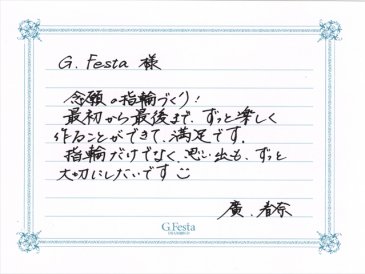 G. Festa 様
念願の指輪づくり!
最初から最後まで、ずっと楽しく
作ることができて、満足です。
指輪だけでなく、思い出も、ずっと
大切にしたいです
廣、春奈
G.Festa